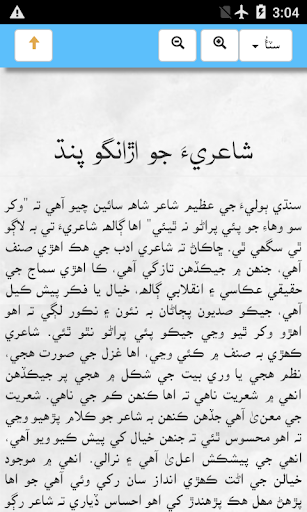 3:04
سٽاءُ
شاعريءَ جو اڙانگو پنڌ
سنڌي ٻوليءَ جي عظيم شاعر شاهہ سائين چيو آهي تہ "وکر
سو وهاءِ جو پئي پراڻو نہ ٿيئي" اها ڳالهہ شاعريءَ تي بہ لاڳو
ٿي سگهي ٿي. ڇاڪاڻ تہ شاعري ادب جي هڪ اهڙي صنف
آهي، جنهن ۾ جيڪڏهن تازگي آهي، ڪا اهڙي سماج جي
حقيقي عڪاسي ۽ انقلابي ڳالهہ، خيال يا فڪر پيش ڪيل
آهي، جيڪو صديون پڄاڻان بہ نئون ۽ نڪور لڳي تہ اهو
اهڙو وکر ٿيو وڃي جيڪو پئي پراڻو نٿو ٿئي. شاعري
ڪهڙي بہ صنف ۾ ڪئي وڃي، اها غزل جي صورت هجي،
نظم هجي يا وري بيت جي شڪل ۾ هجي پر جيڪڏهن
انهي ۾ شعريت ناهي تہ اها ڪنهن ڪم جي ناهي. شعريت
جي معنيٰ آهي جڏهن ڪنهن بہ شاعر جو ڪلام پڙهيو وڃي
تہ اهو محسوس ٿئي تہ ڪنهن خيال کي پيش ڪيو ويو آهي،
انهي جي پيشڪش اعليٰ آهي ۽ نرالي. انهي ۾ موجود
خيالن جي اڻت ڪهڙي انداز سان رکي وئي آهي جو اها
پڙهڻ مهل هڪ پڙهندڙ کي اهو احساس ڏياري تہ شاعر رڳو